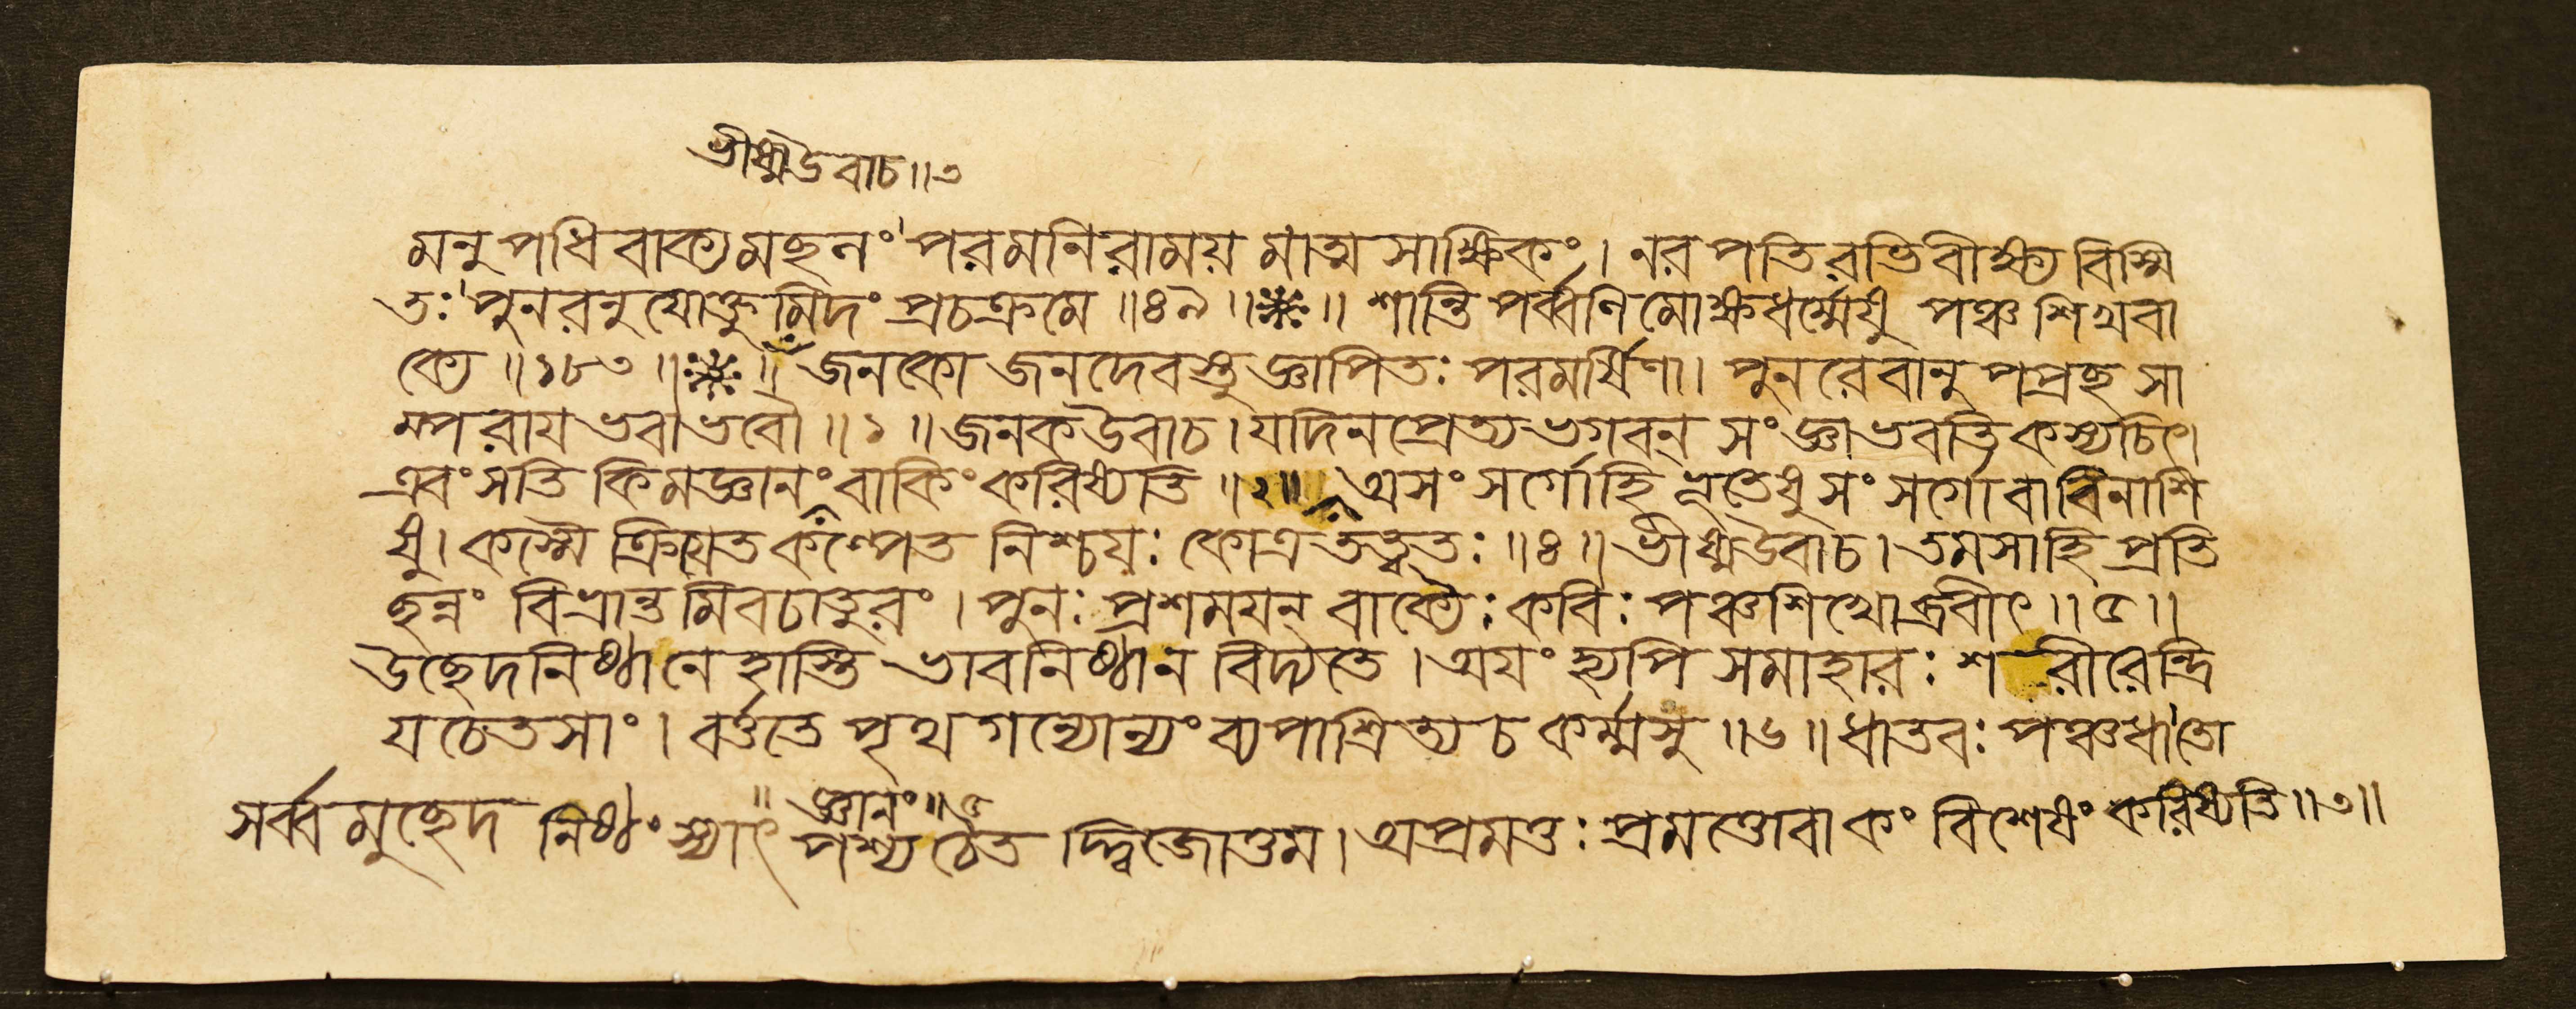 ভীষ্মউবাচ॥৩
মনুপধিবাক্যমছনং পরমনিরাময়মাত্মসাক্ষিকং। নরপতিরভিবীক্ষ্য বিস্মি
তঃ পুনরনুযোক্তুমিদং প্রচক্রমে ॥৪৯॥ ॥ শান্তিপর্ব্বণি মোক্ষধর্ম্মেষু পঞ্চশিখবা
ক্যে ॥১৮৩॥ ॥ জনকো জনদেবস্তু জ্ঞাপিতঃ পরমর্ষিণা। পুনরেবানুপপ্রছ সা
ম্পরায ভবাভবৌ ॥১॥ জনকউবাচ। যদিনপ্রেত্যভগবন্ সংজ্ঞাভবতিকস্যচিৎ।
এবংসতি কিমজ্ঞানং বাকিংকরিষ্যতি ॥২॥ অসংসর্গোহি ভূতেষুসংসর্গোবাবিনাশি
ষু। কস্মৈ ক্রিয়েত কল্পেত নিশ্চয়ঃ কোত্র তত্ত্বতঃ ॥৪॥ ভীষ্মউবাচ। তমসাহি প্রতি
ছন্নং বিভ্রান্তমিবচাতুরং। পুনঃ প্রশময়ন্ বাক্যৈঃ কবিঃ পঞ্চশিখোব্রবীৎ ॥৫॥
উছেদনিষ্ঠানেহাস্তি ভাবনিষ্ঠান বিদ্যতে। অযং হ্যপি সমাহারঃ শরীরেন্দ্রি
যচেতসাং। বর্ত্ততে পৃথগন্যোন্যং ব্যপাশ্রিত্য চ কর্ম্মসু ॥৬॥ ধাতবঃ পঞ্চধাতো
জ্ঞানং॥৫
সর্ব্বমুছেদ নিষ্ঠং স্যাৎ পশ্য চৈত দ্দ্বিজোত্তম। অপ্রমত্তঃ প্রমত্তোবাকং বিশেষং করিষ্যতি ॥৩॥